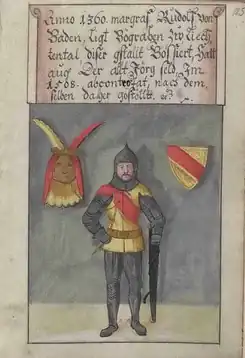 Anno 1360. margraf Rudolf von
Baden, ligt Bograben zuo Liech
tental diser gstallt Bossiert, hatt
auch Der alt Jörg seld Im
1508. abconterfat, nach dem
selben daher gestellt.